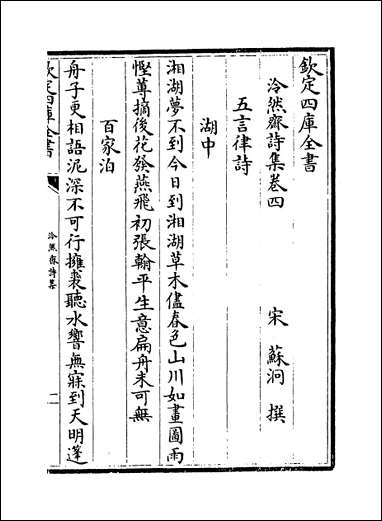 欽定四庫全書
泠然齋詩集卷四
宋 蘇泂 撰
五言律詩
湖中
湘湖夢不到今日到湘湖草木儘春色山川如畫圖雨
慳蓴摘後花發燕飛初張翰平生意扁舟未可無
百家泊
舟子更相語泥深不可行擁裘聽水響無寐到天明蓬
欽定四庫全書
泠然齋詩集